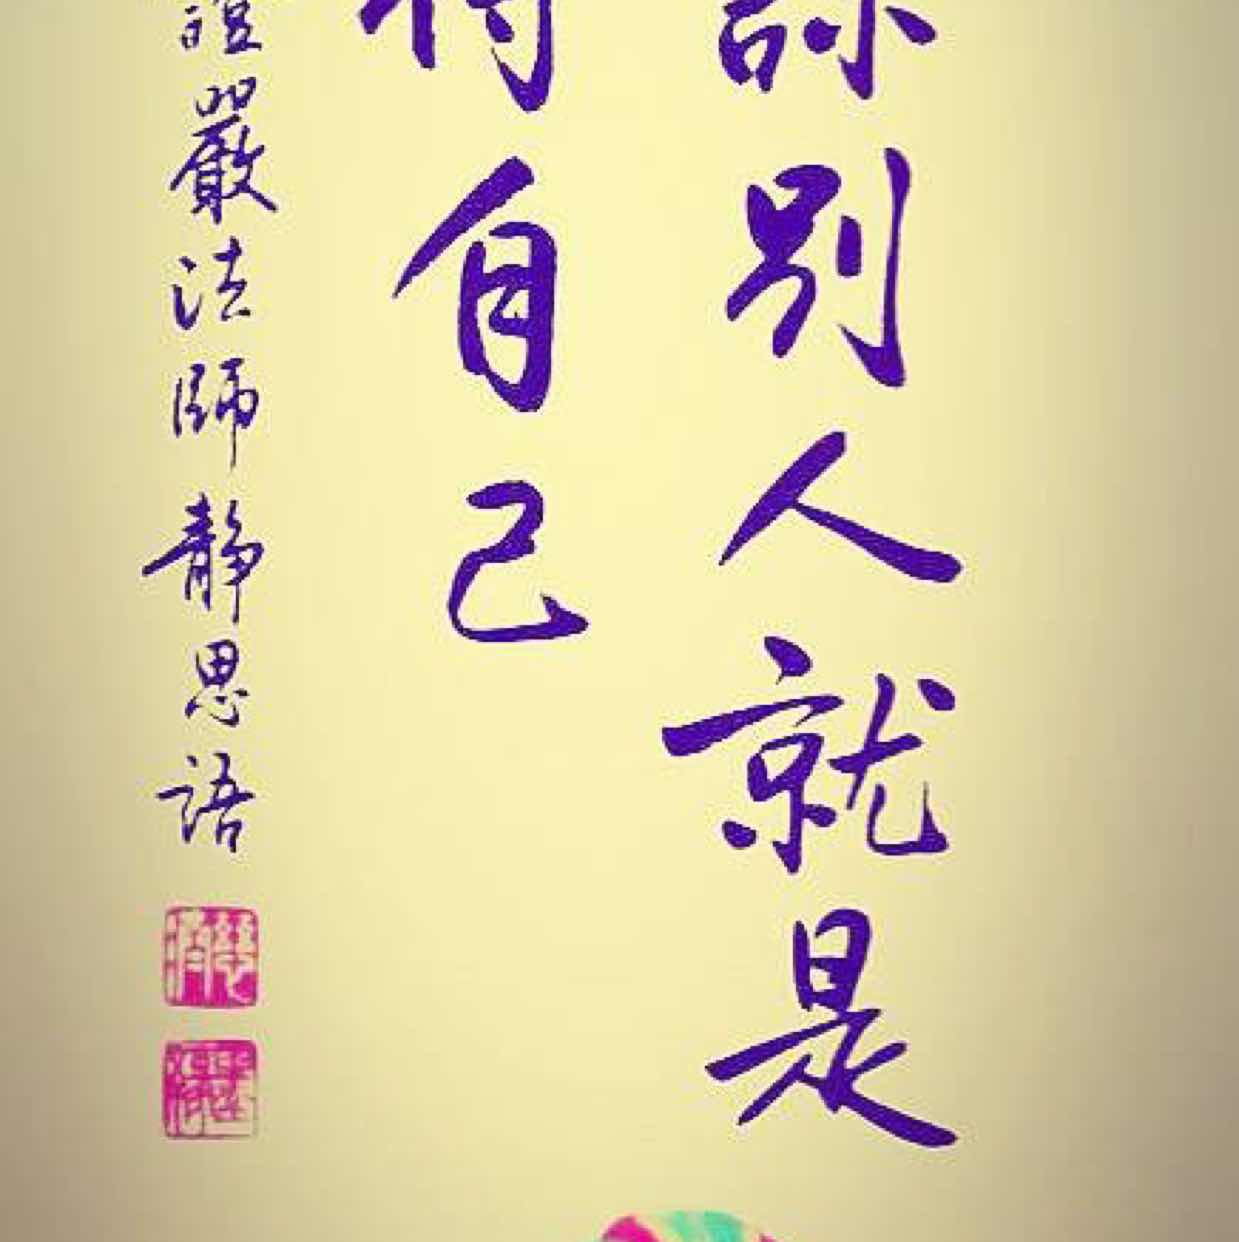 諒別人就是
待自己
證嚴法師靜思語